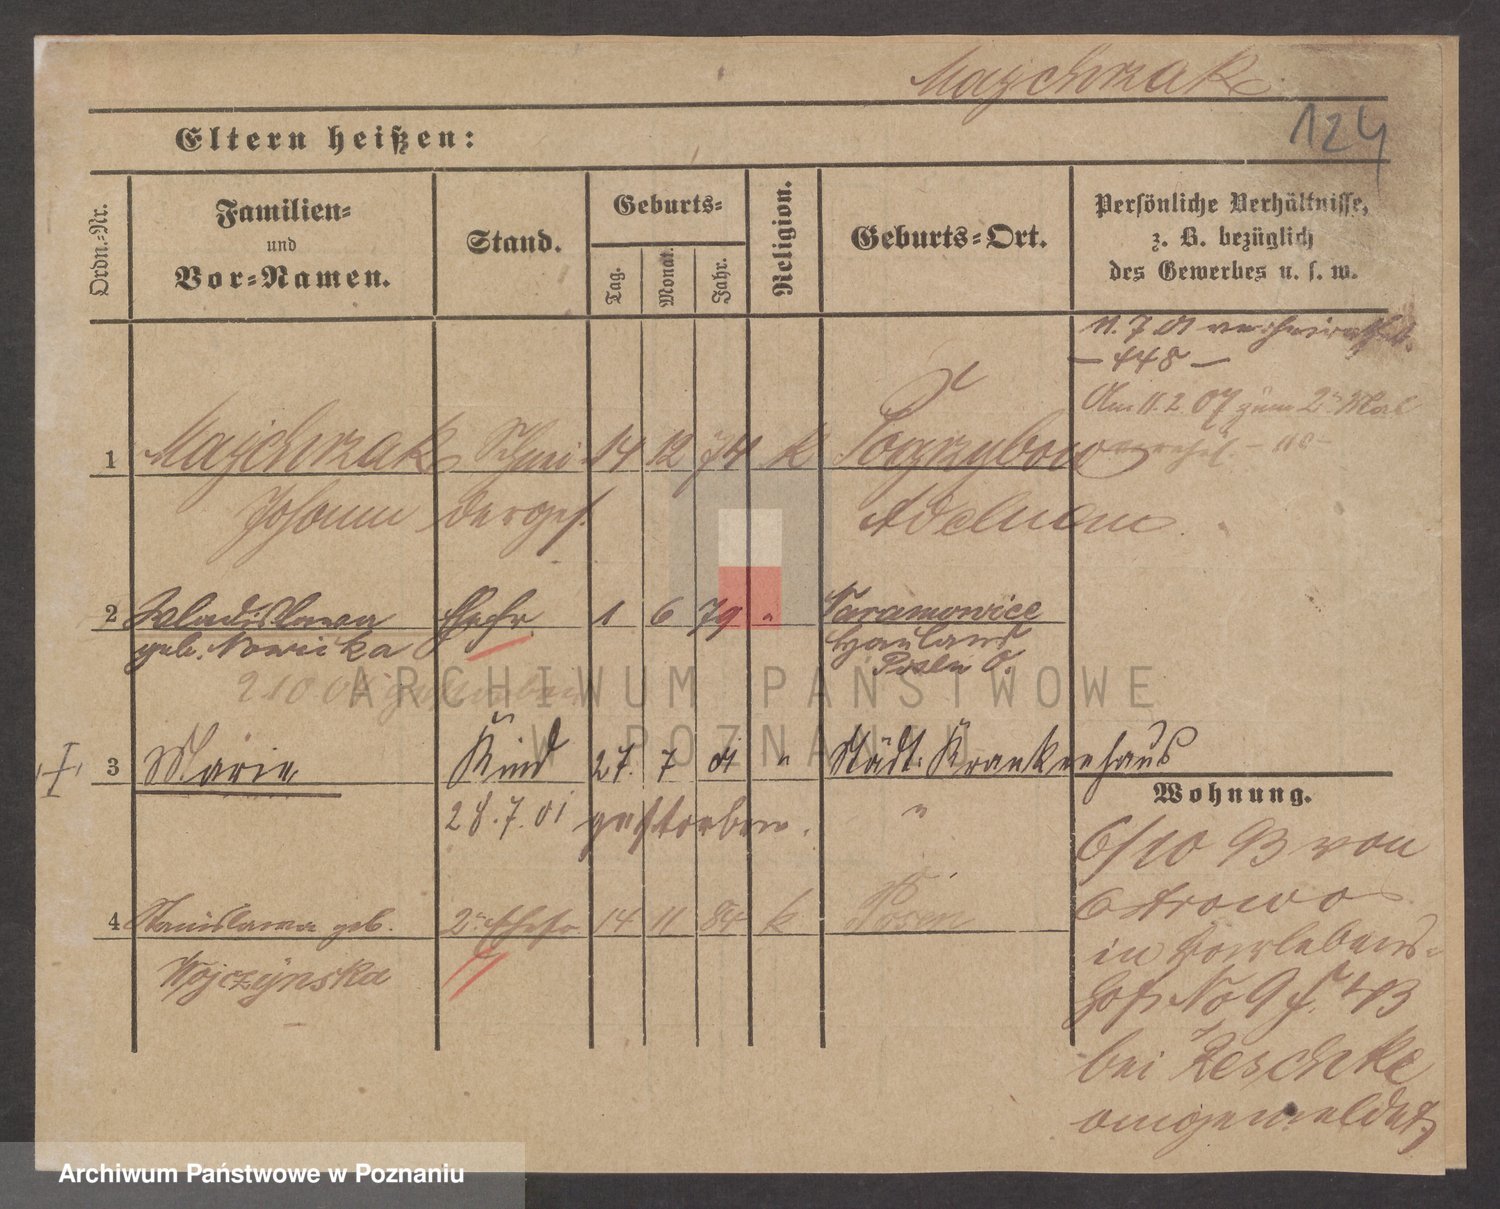 Majchrzak
124
Eltern heißen:
Ordn.-Nr.
Familien-
und
Vor-Namen.
Stand.
Geburts-
Tag.
Monat.
Jahr.
Religion.
Geburts-Ort.
Persönliche Verhältnisse,
z. B. bezüglich
des Gewerbes u. s. w.
11.7.01 verheirathet.
– 448 –
Am 11.2 07 zum 2ten Mal
1 Majchrzak Schnei 14 12 74 k Pogrzybow
Johann dergs. Adelnau
2 Wladislawa Ehefr. 1 6 79 "
geb. Nowicka Hauland
Posen O.
2 10 gestorben
3 Marie Kind 27. 7 01 " Städt. Krankenhaus
28.7.01 gestorben. "
Wohnung.
6/10 93 von
Ostrowo
in
hof No 9
bei Reschke
angemeldet
4 Stanislawa geb. 2te Ehefr 14 11 84 k Posen
Wojczynska
ARCHIWUM PAŃSTWOWE
W POZNANIU
Archiwum Państwowe w Poznaniu